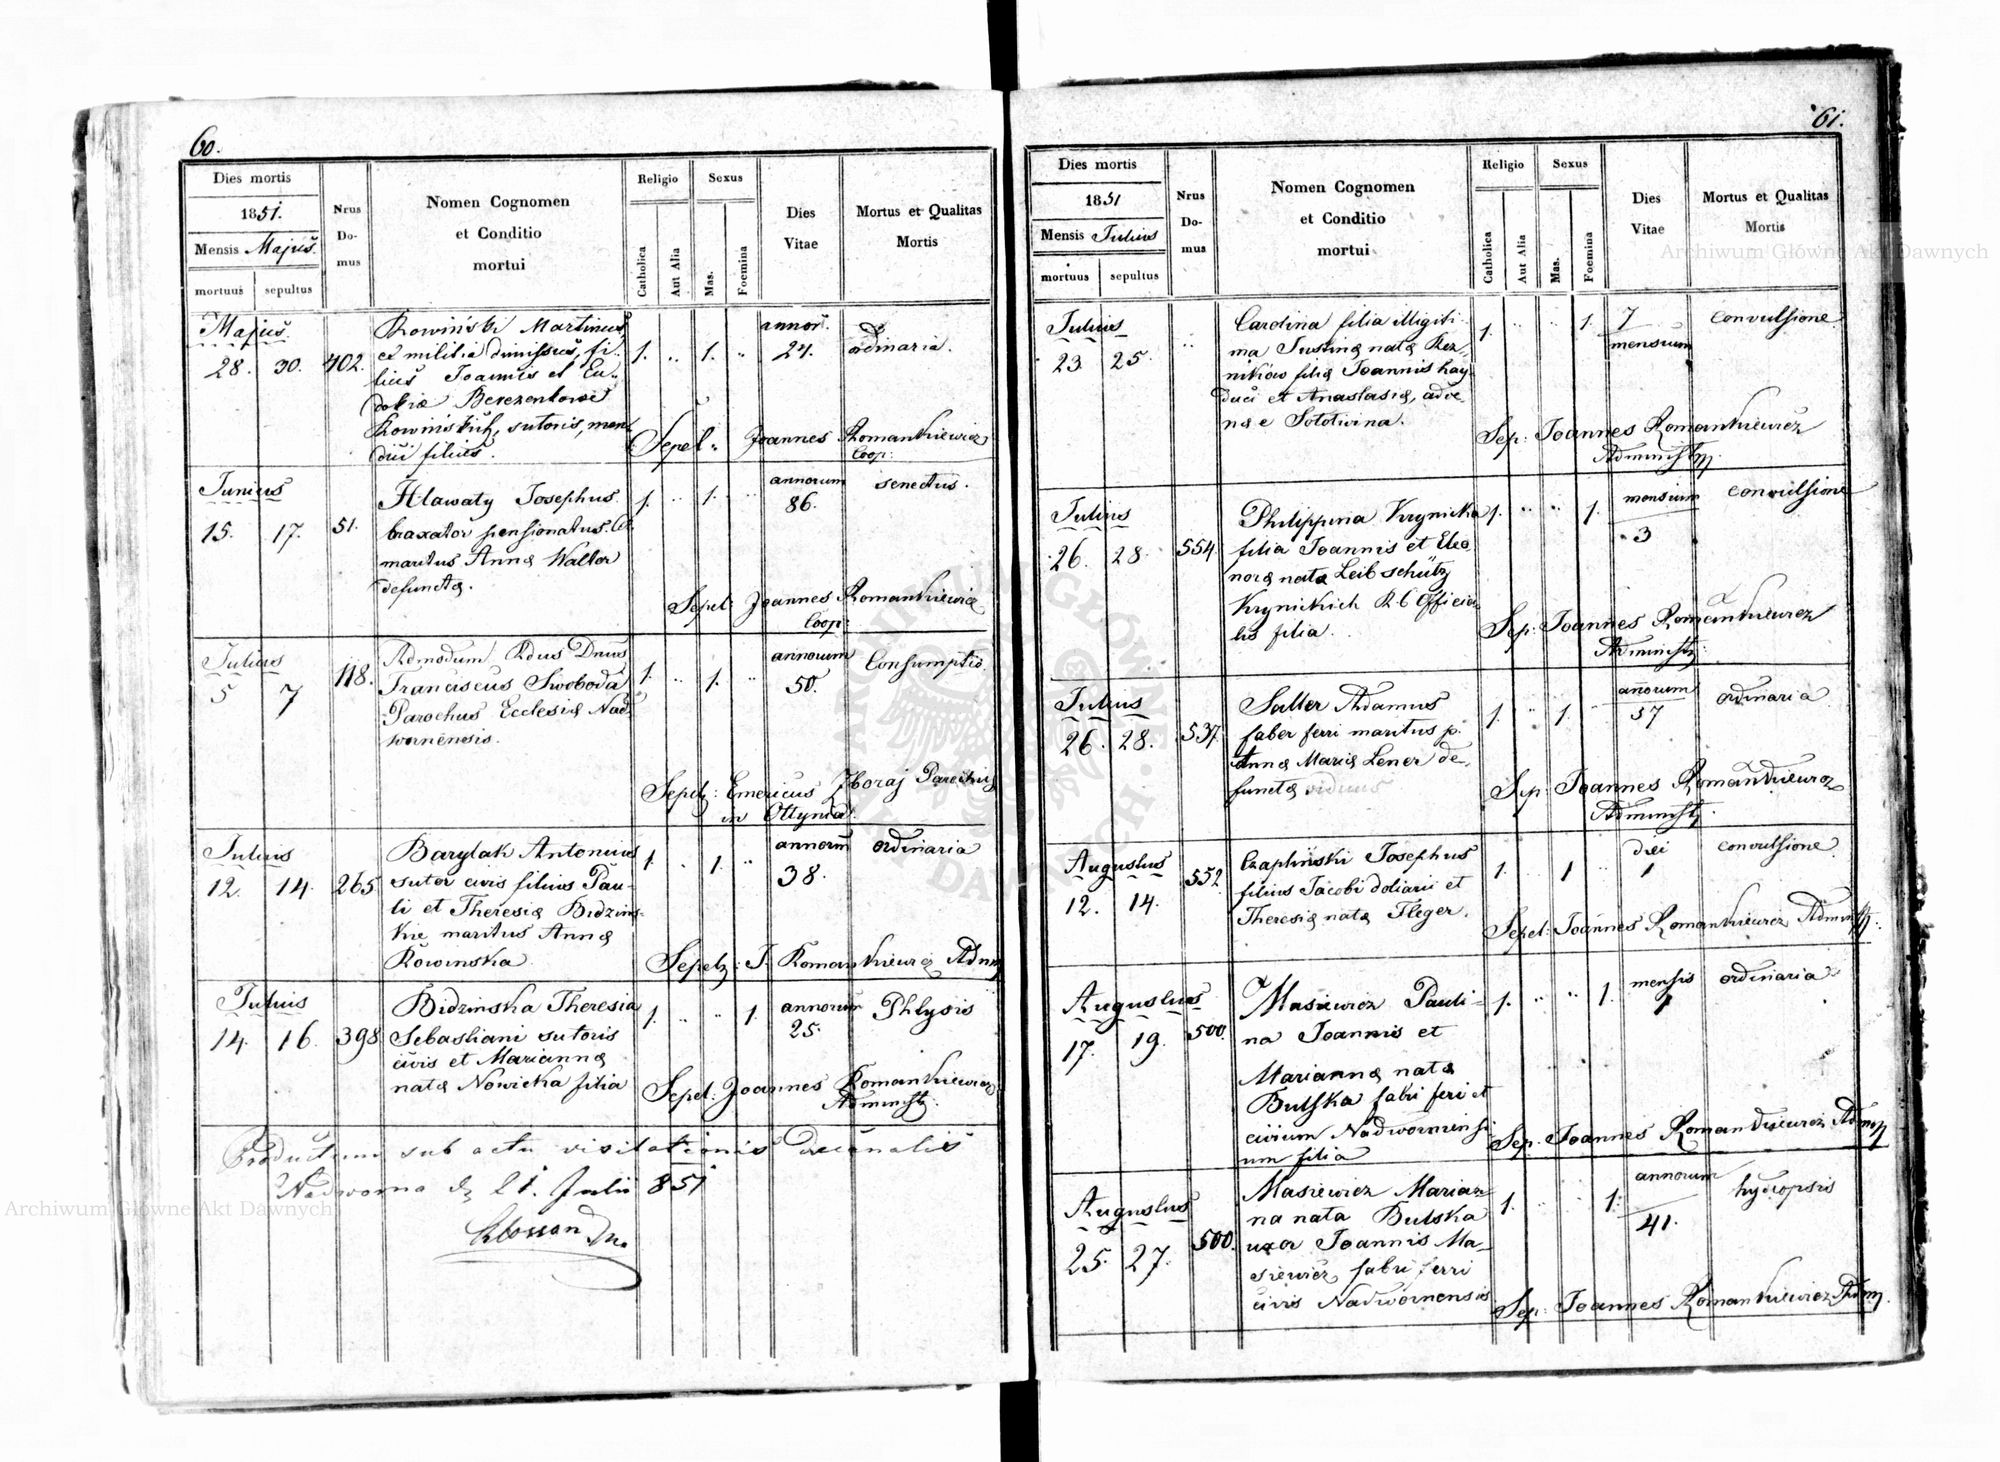 60.
Dies mortis
1851.
Mensis Majus.
mortuus sepultus
Nrus Do-mus
Nomen Cognomen
et Conditio
mortui
Religio
Catholica
Aut Alia
Sexus
Mas.
Foemina
Dies
Vitae
Mortus et Qualitas
Mortis
Majus
28. 30. 402.
Rowiński Martinus,
ex militia dimissus, fi-
lius Joannis et Eu-
dokiæ Berezenkowe
Rowińskich, sutoris, men
dici filius.
1. .. 1. ..
annor.
24.
ordinaria.
Sepel: Joannes Romankiewicz
Coop:
Junius
15. 17. 51.
Hlawaty Josephus
braxator pensionatus
maritus Annæ Walter
defunctæ.
1. .. 1. ..
annorum
86.
senectus.
Sepel: Joannes Romankiewicz
Coop:
Julius
5 7 118.
Admodum Rdus Dnus
Franciscus Swoboda
Parochus Ecclesiæ Nad-
wornensis.
1. .. 1. ..
annorum
50.
Consumptio.
Sepel: Emericus Horaj Parochus
in Ottynia.
Julius
12. 14. 265
Barylak Antonius
sutor civis filius Pau-
li et Theresiæ Bidzins-
kie maritus Annæ
Rowinska
1. .. 1. ..
annorum
38.
ordinaria
Sepel: J. Romankiewicz Adm
Julius
14. 16. 398
Bidzinska Theresia
Sebastiani sutoris
civis et Mariannæ
natæ Nowicka filia
1. .. .. 1.
annorum
25.
Phtysis
Sepel: Joannes Romankiewicz
Administr.
Productum sub actu visitationis decanalis
Nadworna d. 21. Julii 851
61.
Dies mortis
1851
Mensis Julius
mortuus sepultus
Nrus Do-mus
Nomen Cognomen
et Conditio
mortui
Religio
Catholica
Aut Alia
Sexus
Mas.
Foemina
Dies
Vitae
Mortus et Qualitas
Mortis
Julius
23. 25. ..
Carolina filia illigiti-
ma Justinæ natæ Rez-
nikiów filiæ Joannis hay
duci et Anastasiæ, adve-
næ e Sototwina.
1. .. .. 1.
7
mensium
convulsione
Sep: Joannes Romankiewicz
Administr.
Julius
26. 28. 554.
Philippina Krynicka
filia Joannis et Eleo
noræ natæ Leibschütz
Krynickich R. C. Officia
lis filia.
1. .. .. 1.
mensium
3
convulsione
Sep: Joannes Romankiewicz
Administr.
Julius
26. 28. 537.
Salter Adamus
faber ferri maritus p.
Annæ Mariæ Lener de-
functæ viduus
1. .. 1. ..
annorum
57
ordinaria
Sep: Joannes Romankiewicz
Administr.
Augustus
12. 14. 552.
Czapliński Josephus
filius Jacobi doliarii et
Theresiæ natæ Fleger.
1. .. 1 ..
diei
1
convulsione
Sepel: Joannes Romankiewicz Administr.
Augustus
17. 19. 500.
Masiewicz Pauli-
na Joannis et
Mariannæ natæ
Bulska fabri feri et
civium Nadwornensi
um filia
1. .. .. 1.
mensis
1
ordinaria
Sep: Joannes Romankiewicz Adm
Augustus
25. 27. 500.
Masiewicz Marian
na nata Bulska
uxor Joannis Ma-
siewicz fabri ferri
civis Nadwornensis
1. .. .. 1.
annorum
41.
hydropsis
Sep: Joannes Romankiewicz Adm.
Archiwum Główne Akt Dawnych
Archiwum Główne Akt Dawnych
ARCHIWUM GŁÓWNE AKT DAWNYCH